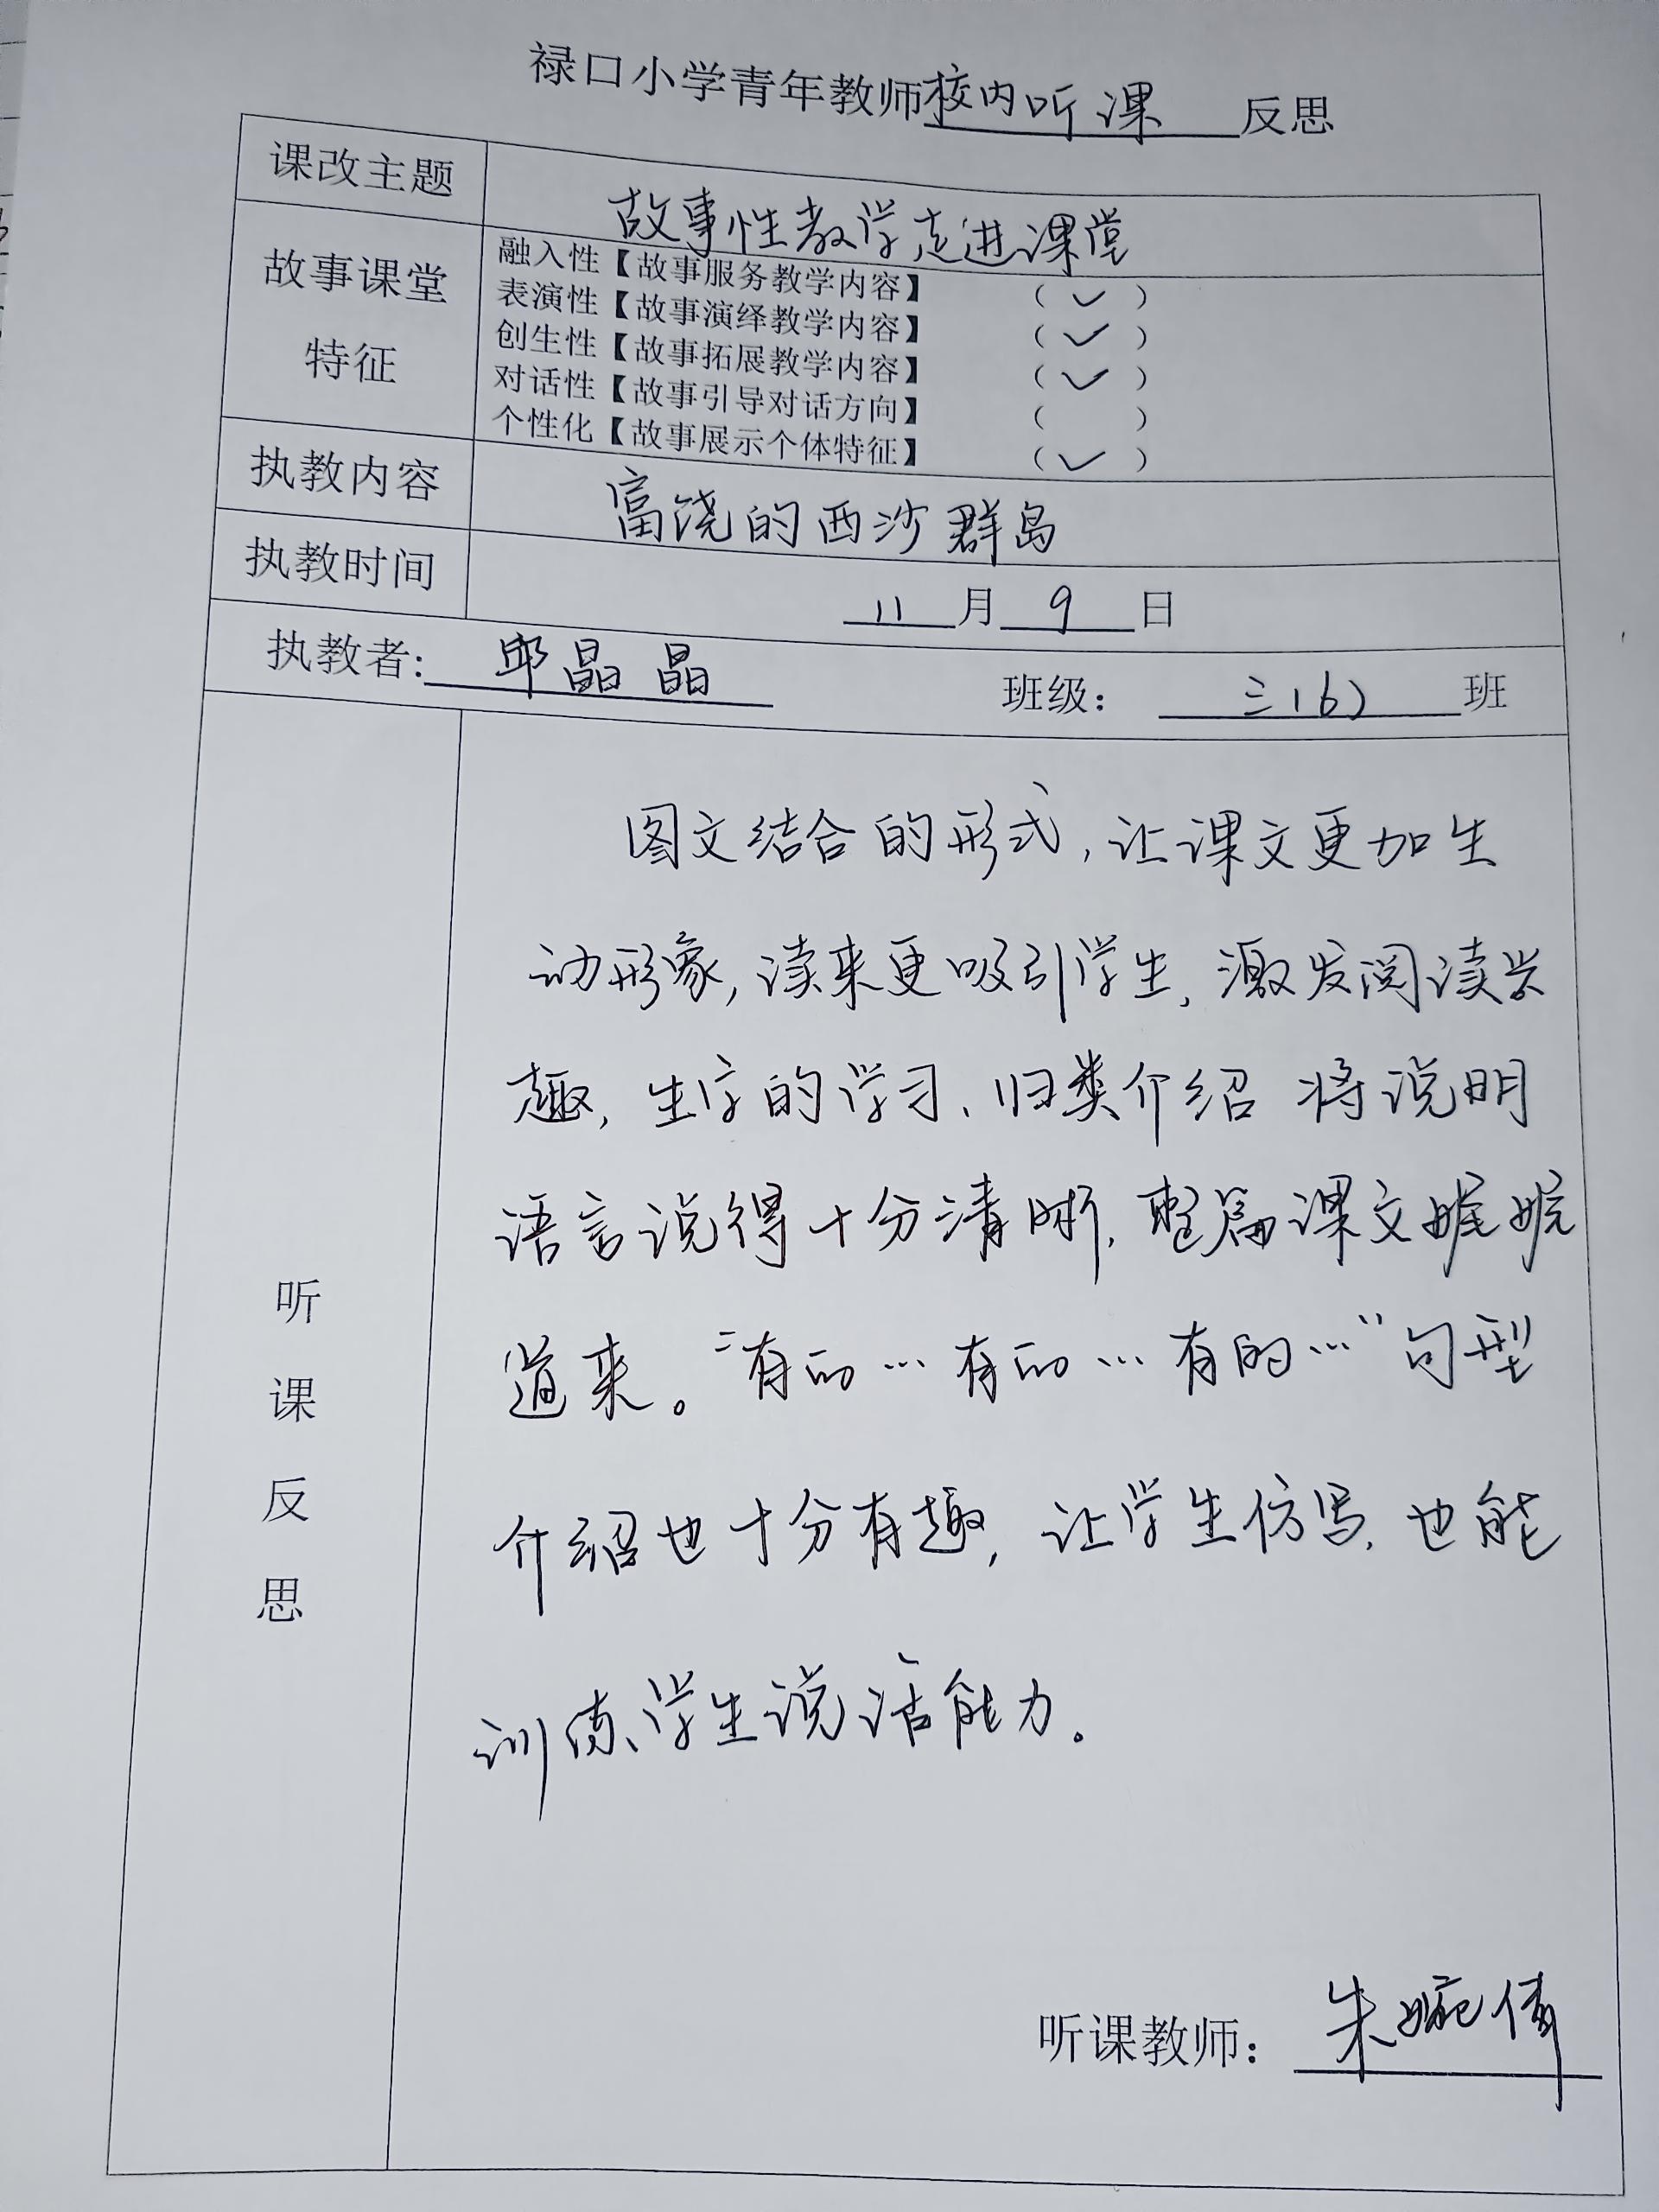 禄口小学青年教师校内听课反思
课改主题
故事性教学走进课堂
故事课堂
特征
融入性【故事服务教学内容】 （✓）
表演性【故事演绎教学内容】 （✓）
创生性【故事拓展教学内容】 （✓）
对话性【故事引导对话方向】 （ ）
个性化【故事展示个体特征】 （✓）
执教内容
富饶的西沙群岛
执教时间
11月9日
执教者：邱晶晶 班级：三（6）班
听课反思
图文结合的形式，让课文更加生
动形象，读来更吸引学生，激发阅读兴
趣，生字的学习、归类介绍 将说明
语言说得十分清晰，整篇课文娓娓
道来。“有的…有的…有的…”句型
介绍也十分有趣，让学生仿写，也能
训练学生说话能力。
听课教师：朱婉倩